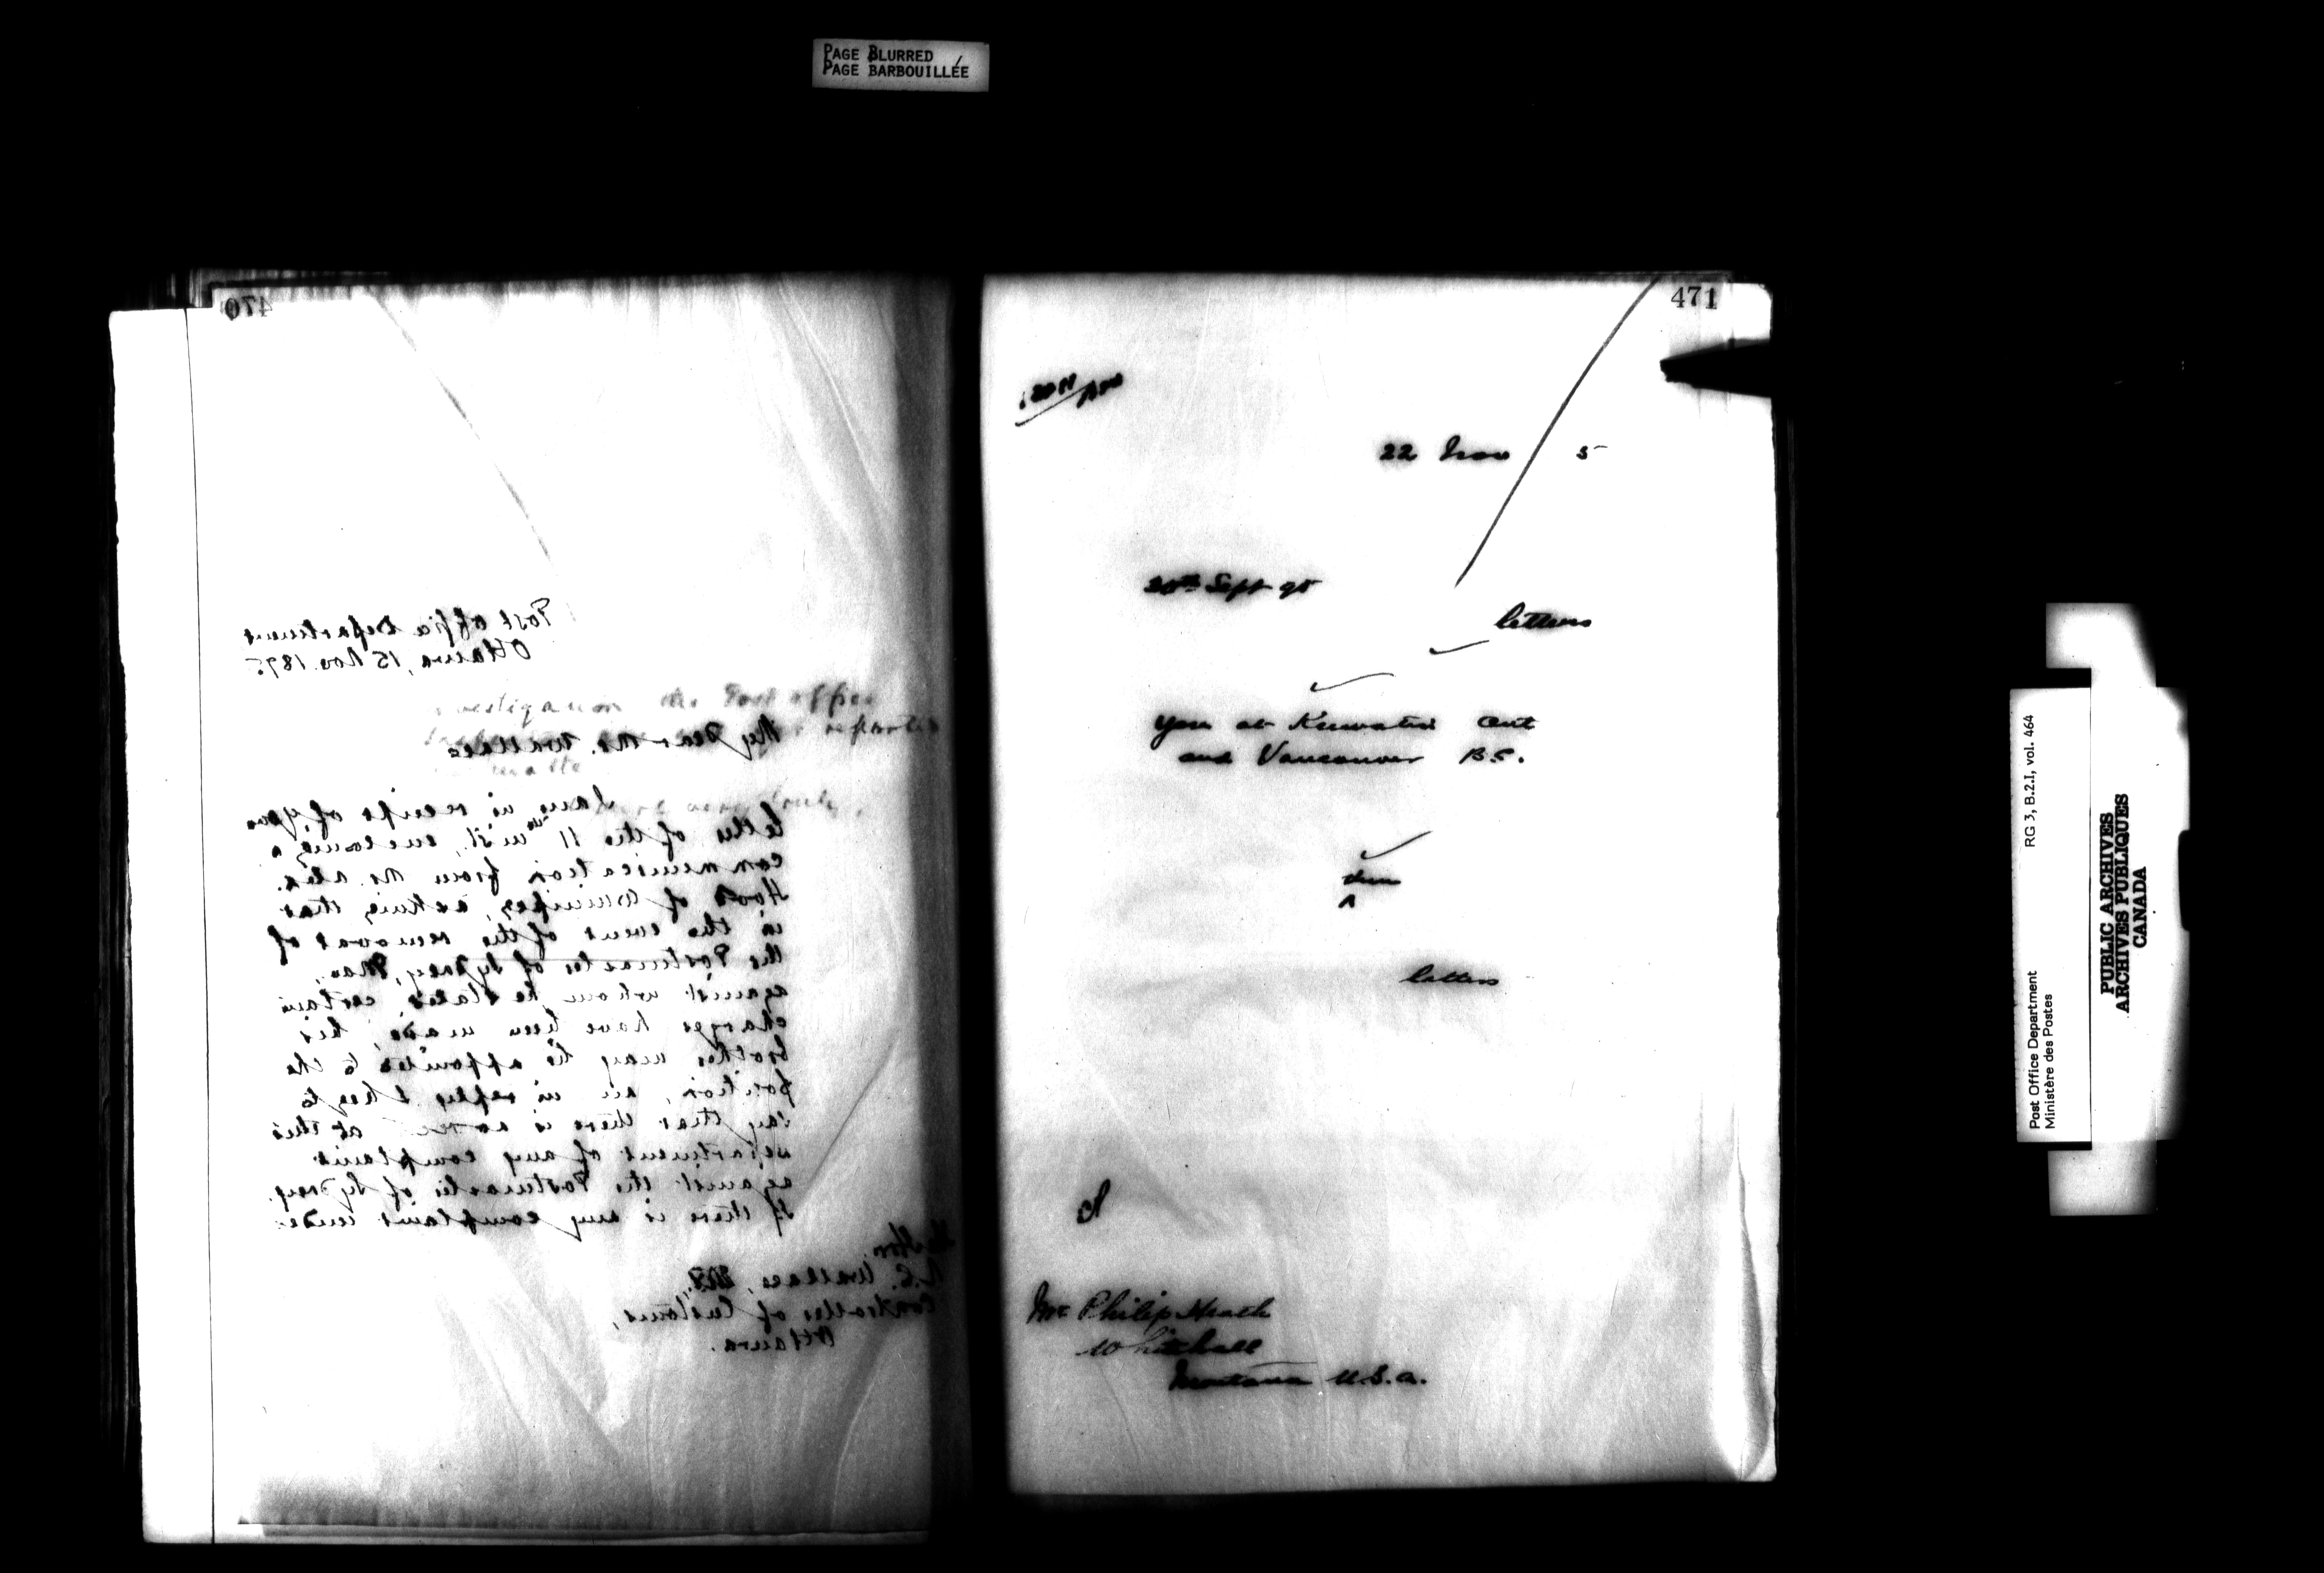 PAGE BLURRED
PAGE BARBOUILLÉE
470
Post Office Department
Ottawa, 15 Nov. 1895
My Dear Mr. Wallace
I am in receipt of your
letter of the 11th inst., enclosing a
communication from Mr. Alex.
of Winnipeg, asking that
in the event of the removal of
the Postmaster of Man.,
against whom, he states, certain
charges have been made, his
brother may be appointed to the
position, and in reply I beg to
say that there is no at this
Department of any complaint
against the Postmaster of
If there is any complaint under
Hon.
Wallace, M.P.,
Controller of Customs,
Ottawa.
471
22 Nov 5
Sept 95
letters
you at Keewatin Ont
and Vancouver B.C.
letters
Mr Philip Heath
Whitehall
Montana U.S.A.
Post Office Department RG 3, B.2.I, vol. 464
Ministère des Postes
PUBLIC ARCHIVES
ARCHIVES PUBLIQUES
CANADA